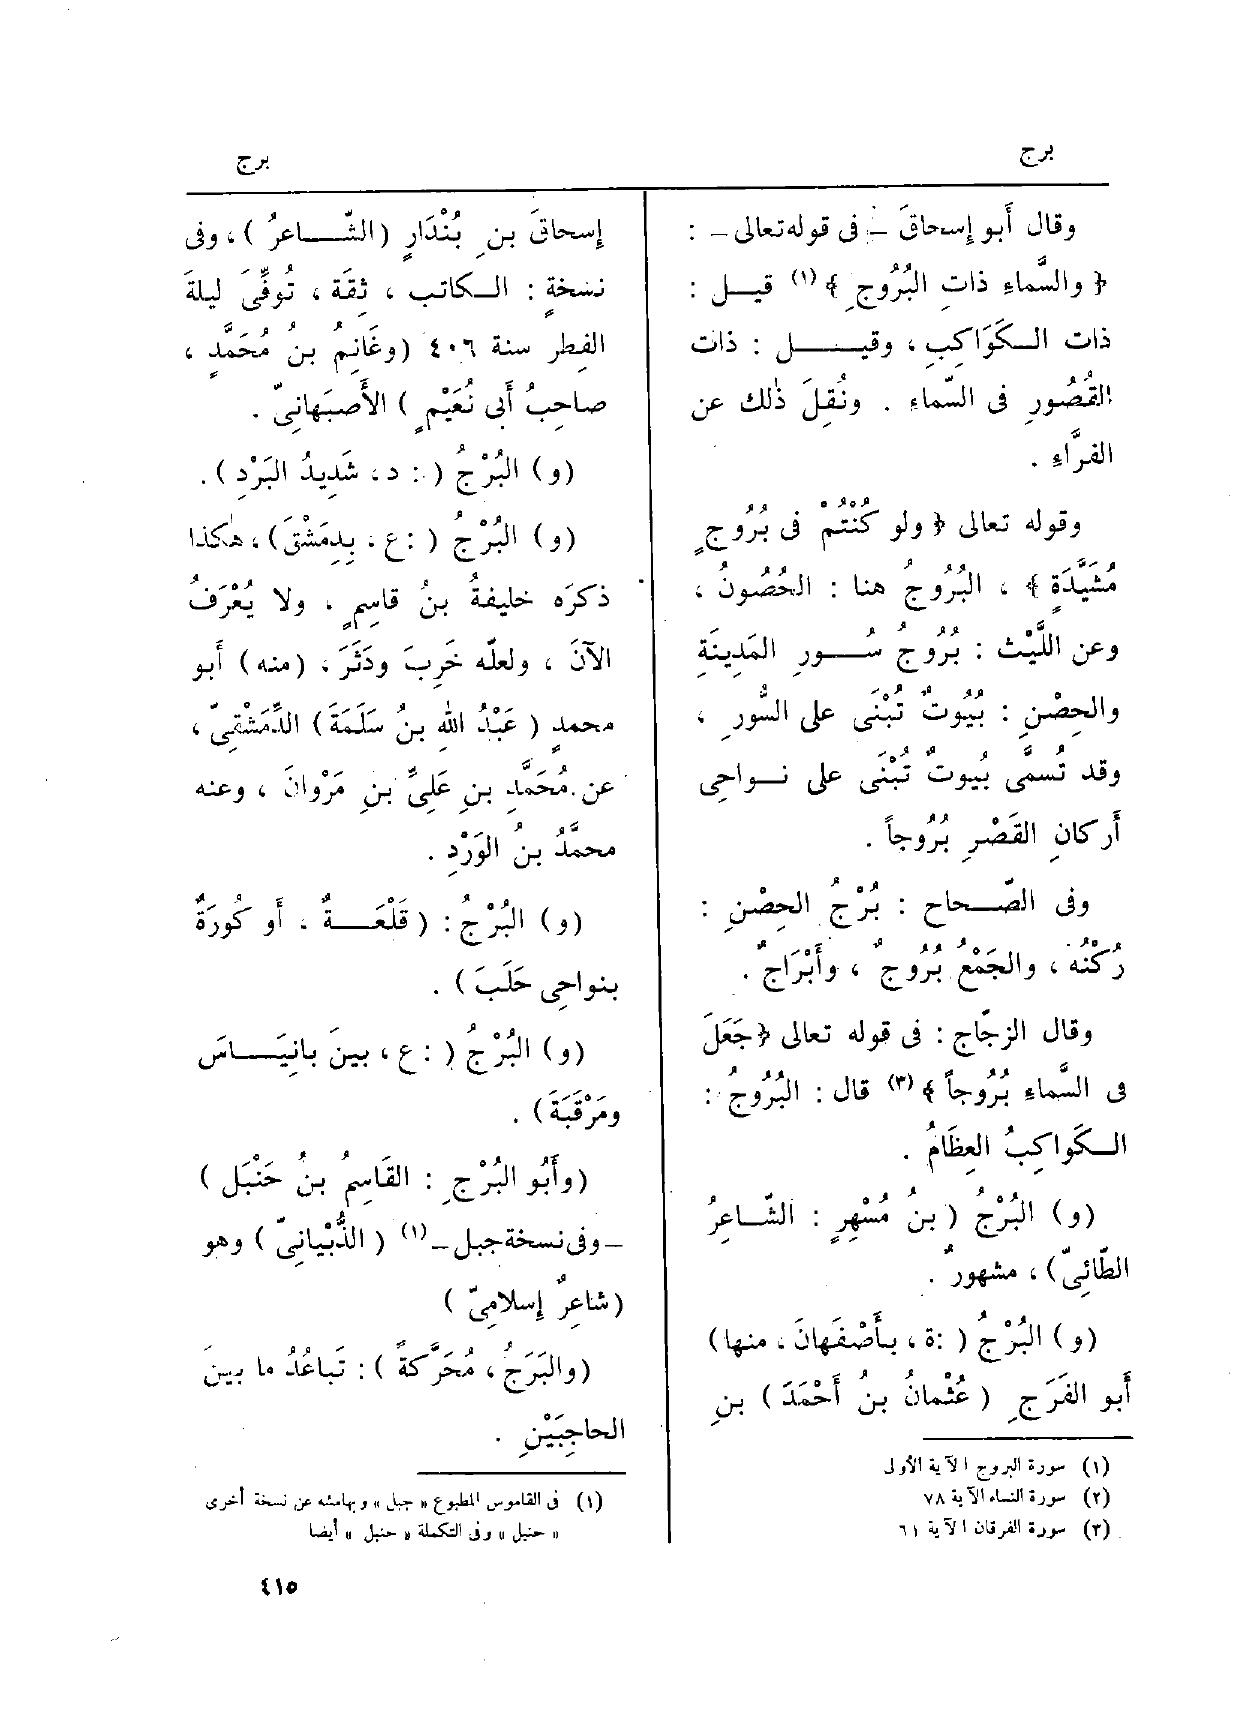 برج
برج
وقال أَبو إسحاقَ – فى قوله تعالى – :
﴿ والسَّماءِ ذاتِ البُرُوجِ ﴾ (١) قيل :
ذات الكَوَاكِبِ ، وقيل : ذات
القُصُورِ فى السّماءِ . ونُقِلَ ذٰلك عن
الفرَّاءِ .
وقوله تعالى ﴿ ولو كُنْتُمْ فى بُرُوجٍ
مُشَيَّدَةٍ ﴾ ، البُرُوجُ هنا : الحُصُونُ ،
وعن اللَّيْث : بُرُوجُ سُورِ المَدِينَةِ
والحِصْنِ : بُيُوتٌ تُبْنَى على السُّورِ ،
وقد تُسمَّى بُيوتٌ تُبْنَى على نواحِى
أَركانِ القَصْرِ بُرُوجاً .
وفى الصّحاح : بُرْجُ الحِصْنِ :
رُكْنُه ، والجَمْعُ بُرُوجٌ ، وأَبْرَاجٌ .
وقال الزجّاج : فى قوله تعالى ﴿جَعَلَ
فى السَّماءِ بُرُوجاً ﴾ (٣) قال : البُرُوجُ :
الكَواكِبُ العِظَامُ .
(و) البُرْجُ ( بنُ مُسْهِرٍ : الشّاعِرُ
الطّائِىّ) ، مشهورٌ .
(و) البُرْجُ ( :ة ، بأَصْفَهانَ ، منها)
أَبو الفَرَجِ ( عُثْمانُ بنُ أَحْمَدَ ) بنِ
(١) سورة البروج الآية الأولى
(٢) سورة النساء الآية ٧٨
(٣) سورة الفرقان الآية ٦١
إسحاقَ بنِ بُنْدَارٍ (الشّاعرُ ) ، وفى
نسْخةٍ : الكاتب ، ثقة ، تُوفِّىَ ليلةَ
الفِطرِ سنة ٤٠٦ (وغَانِمُ بنُ مُحَمَّدٍ ،
صاحِبُ أَبى نُعَيْمٍ ) الأَصبَهانىّ .
(و) البُرْجُ ( : د ، شَدِيدُ البَرْدِ ) .
(و) البُرْجُ ( :ع ، بِدِمَشْقَ) ، هٰكذا
ذكرَه خليفةُ بنُ قاسِمٍ ، ولا يُعْرَفُ
الآنَ ، ولعلّه خَرِبَ ودَثَرَ ، (منه) أَبو
محمدٍ ( عَبْدُ اللهِ بنُ سَلَمَةَ ) الدِّمَشْقِىّ ،
عن مُحَمَّدِ بنِ عَلِىِّ بنِ مَرْوانَ ، وعنه
محمَّدُ بنُ الوَرْدِ .
(و) البُرْجُ : ( قَلْعَةٌ ، أَو كُورَةٌ
بنواحِى حَلَبَ ) .
(و) البُرْجُ ( :ع ، بينَ بانِيَاسَ
ومَرْقَبَةَ) .
(وأَبُو البُرْجِ : القَاسِمُ بنُ حَنْبَل )
– وفى نسخة جبل – (١) ( الذُّبْيانِىّ ) وهو
(شاعِرٌ إسلامِىّ )
(والبَرَجُ ، مُحَرَّكةً ) : تَباعُدُ ما بينَ
الحاجِبَيْنِ .
(١) فى القاموس المطبوع « جبل » وبهامشه عن نسخة أخرى
« حنبل » وفى التكملة « حنبل » أيضا
٤١٥